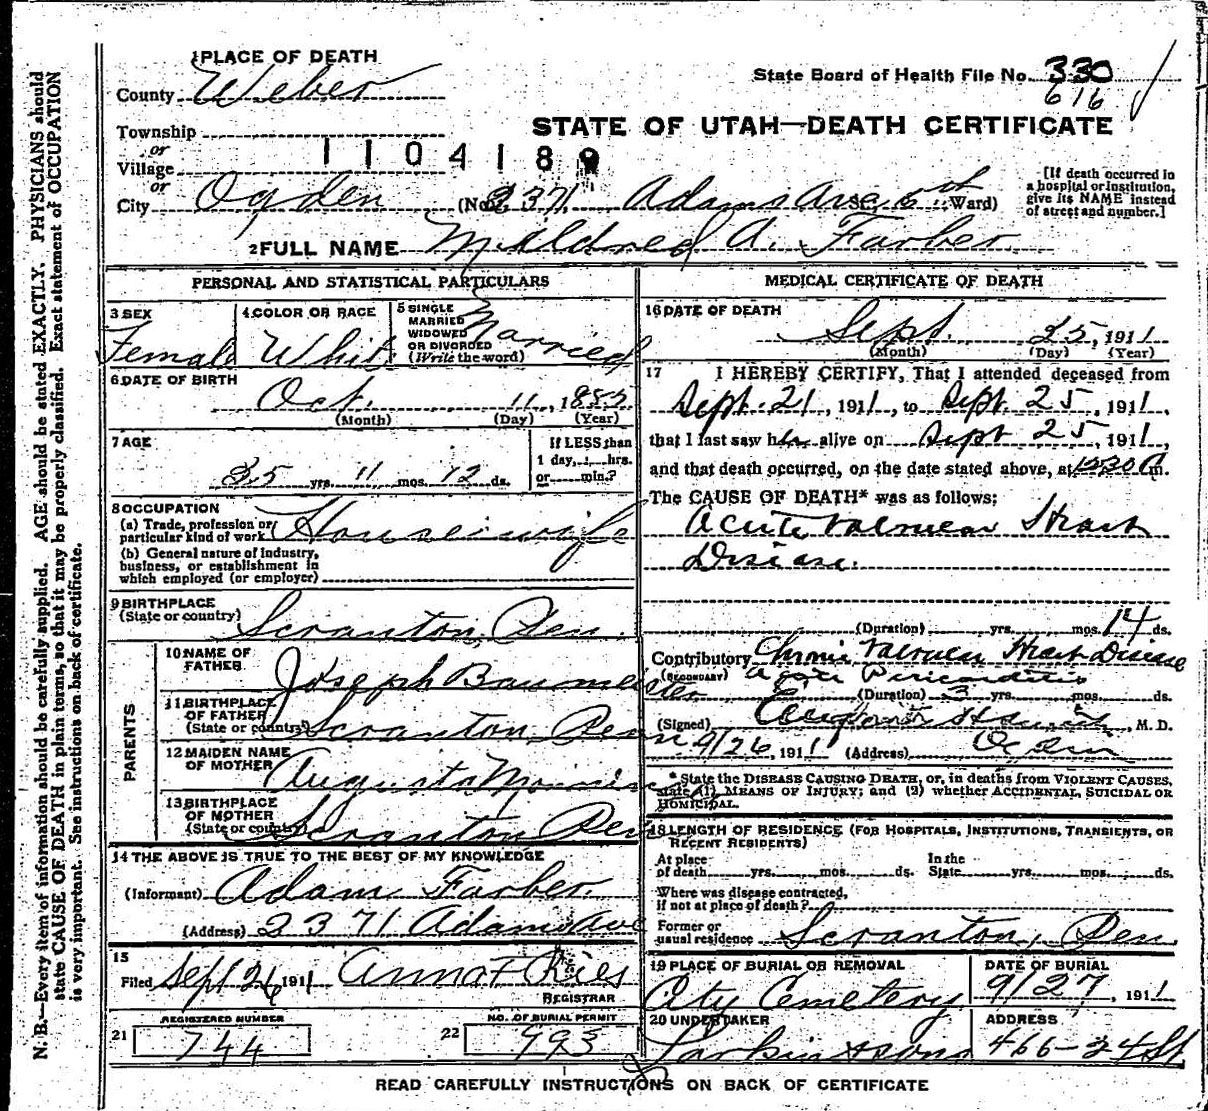 1 PLACE OF DEATH
County Weber
State Board of Health File No. 330
616
Township
or
Village
or
1104189
STATE OF UTAH—DEATH CERTIFICATE
City Ogden (No. 2371 Adams Ave. 5th Ward)
[If death occurred in a hospital or Institution, give its NAME instead of street and number.]
2 FULL NAME Mildred A. Farber
PERSONAL AND STATISTICAL PARTICULARS
3 SEX
Female
4 COLOR OR RACE
White
5 SINGLE MARRIED WIDOWED OR DIVORCED (Write the word)
Married
6 DATE OF BIRTH
Oct. 11, 1885
(Month) (Day) (Year)
7 AGE
25 yrs. 11 mos. 12 ds.
If LESS than
1 day, hrs.
or min.?
8 OCCUPATION
(a) Trade, profession or particular kind of work Housewife
(b) General nature of industry, business, or establishment in which employed (or employer)
9 BIRTHPLACE
(State or country) Scranton, Pen.
PARENTS
10 NAME OF FATHER Joseph Baumeister
11 BIRTHPLACE OF FATHER (State or country) Scranton, Penn
12 MAIDEN NAME OF MOTHER Augusta
13 BIRTHPLACE OF MOTHER (State or country) Scranton Pen
14 THE ABOVE IS TRUE TO THE BEST OF MY KNOWLEDGE
(Informant) Adam Farber
(Address) 2371 Adams Ave
15
Filed Sept 26, 1911 Anna F Ries
REGISTRAR
21 REGISTERED NUMBER
744
22 NO. OF BURIAL PERMIT
993
MEDICAL CERTIFICATE OF DEATH
16 DATE OF DEATH
Sept. 25, 1911
(Month) (Day) (Year)
17 I HEREBY CERTIFY, That I attended deceased from
Sept. 21, 1911, to Sept 25, 1911,
that I last saw her alive on Sept 25, 1911,
and that death occurred, on the date stated above, at 1230 A m.
The CAUSE OF DEATH* was as follows:
Acute Valvular Heart
Disease.
(Duration) yrs. mos. 14 ds.
Contributory Chronic Valvular Heart Disease
(SECONDARY) Acute Pericarditis
(Duration) 3 yrs. mos. ds.
(Signed) M. D.
9/26, 1911 (Address) Ogden
*State the DISEASE CAUSING DEATH, or, in deaths from VIOLENT CAUSES, state (1) MEANS OF INJURY; and (2) whether ACCIDENTAL, SUICIDAL OR HOMICIDAL.
18 LENGTH OF RESIDENCE (FOR HOSPITALS, INSTITUTIONS, TRANSIENTS, OR RECENT RESIDENTS)
At place of death yrs. mos. ds. In the State yrs. mos. ds.
Where was disease contracted, if not at place of death?
Former or usual residence Scranton, Pen.
19 PLACE OF BURIAL OR REMOVAL
City Cemetery
DATE OF BURIAL
9/27, 1911
20 UNDERTAKER
Larkin & Sons
ADDRESS
466-24 St
READ CAREFULLY INSTRUCTIONS ON BACK OF CERTIFICATE
N. B.—Every item of information should be carefully supplied. AGE should be stated EXACTLY. PHYSICIANS should
state CAUSE OF DEATH in plain terms, so that it may be properly classified. Exact statement of OCCUPATION
is very important. See instructions on back of certificate.